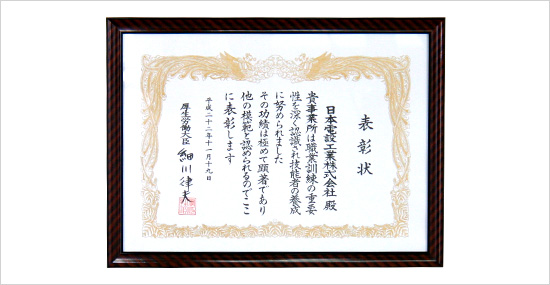 表彰状
日本電設工業株式会社 殿
貴事業所は職業訓練の重要
性を深く認識され技能者の養成
に努められました
その功績は極めて顕著であり
他の模範と認められるのでここ
に表彰します
平成二十二年十一月十九日
厚生労働大臣 細川律夫